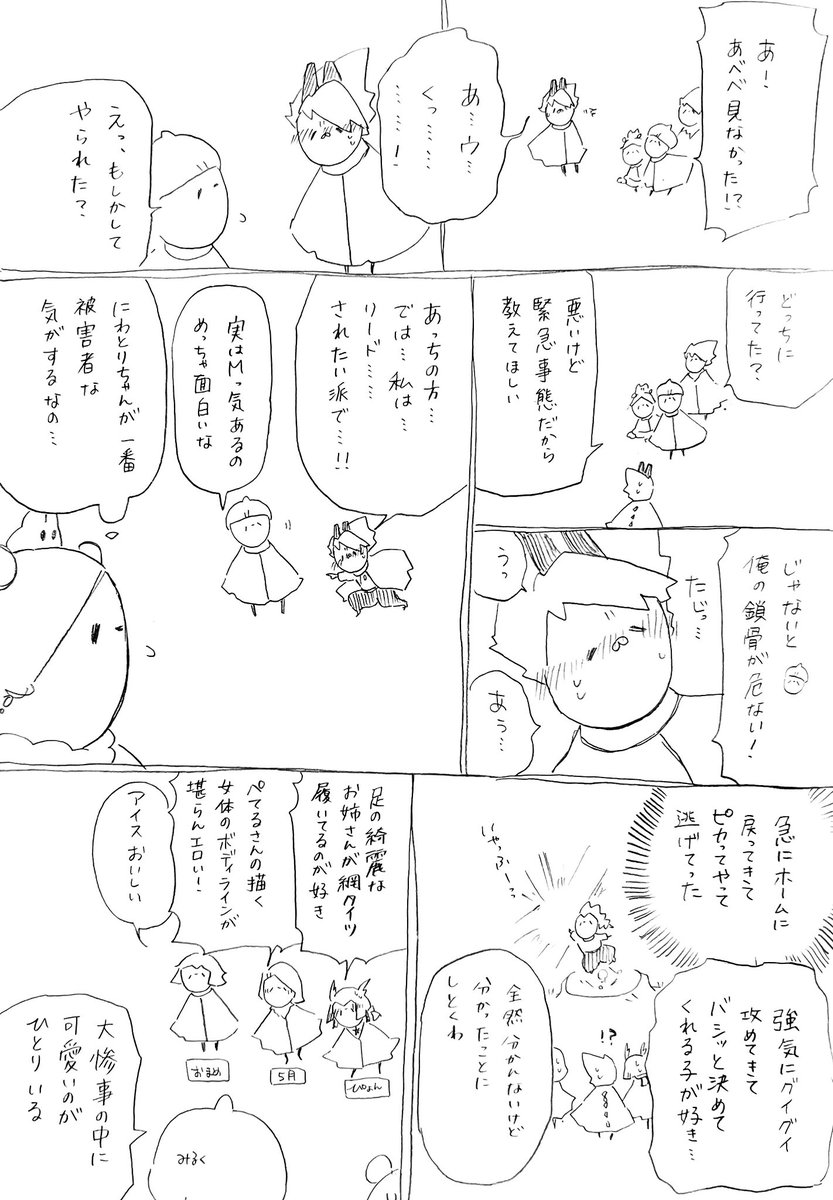 あー!
あべべ見なかった!?
あ…ウ…
くっ……
……!
えっ、もしかして
やられた?
どっちに
行ってた?
悪いけど
緊急事態だから
教えてほしい
じゃないと
俺の鎖骨が危ない!
たじっ…
うっ
あう…
あっちの方…
では…私は…
リード……
されたい派で…!!
実はMっ気あるの
めっちゃ面白いな
にわとりちゃんが一番
被害者な
気がするなの…
急にホームに
戻ってきて
ピカってやって
逃げてった
いやっふーっ
強気にグイグイ
攻めてきて
バシッと決めて
くれる子が好き…
!?
全然分かんないけど
分かったことに
しとくわ
足の綺麗な
お姉さんが網タイツ
履いてるのが好き
ぺてるさんの描く
女体のボディラインが
堪らんエロい!
アイスおいしい
ぴょん
5月
おまめ
大惨事の中に
可愛いのが
ひとりいる
みるく